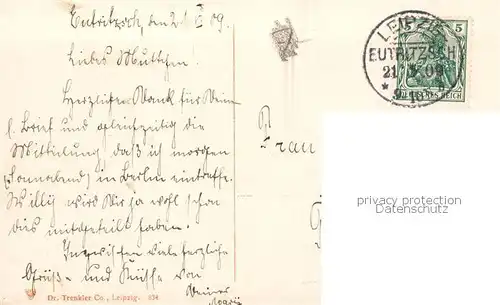 Eutritzsch, den 21. I 09.
Liebes Muttchen.
Herzlichen Dank für Deinen
l. Brief und gleichzeitig die
Mitteilung, daß ich morgen
(Sonnabend) in Berlin eintreffe.
Willy wird Dir ja wohl schon
dies mitgeteilt haben.
Inzwischen viele herzliche
Grüße und Küsse von
Deiner
Marie
Dr. Trenkler Co., Leipzig.
LEIPZIG
EUTRITZSCH
21. 09
5
DEUTSCHES REICH
Frau
privacy protection
Datenschutz